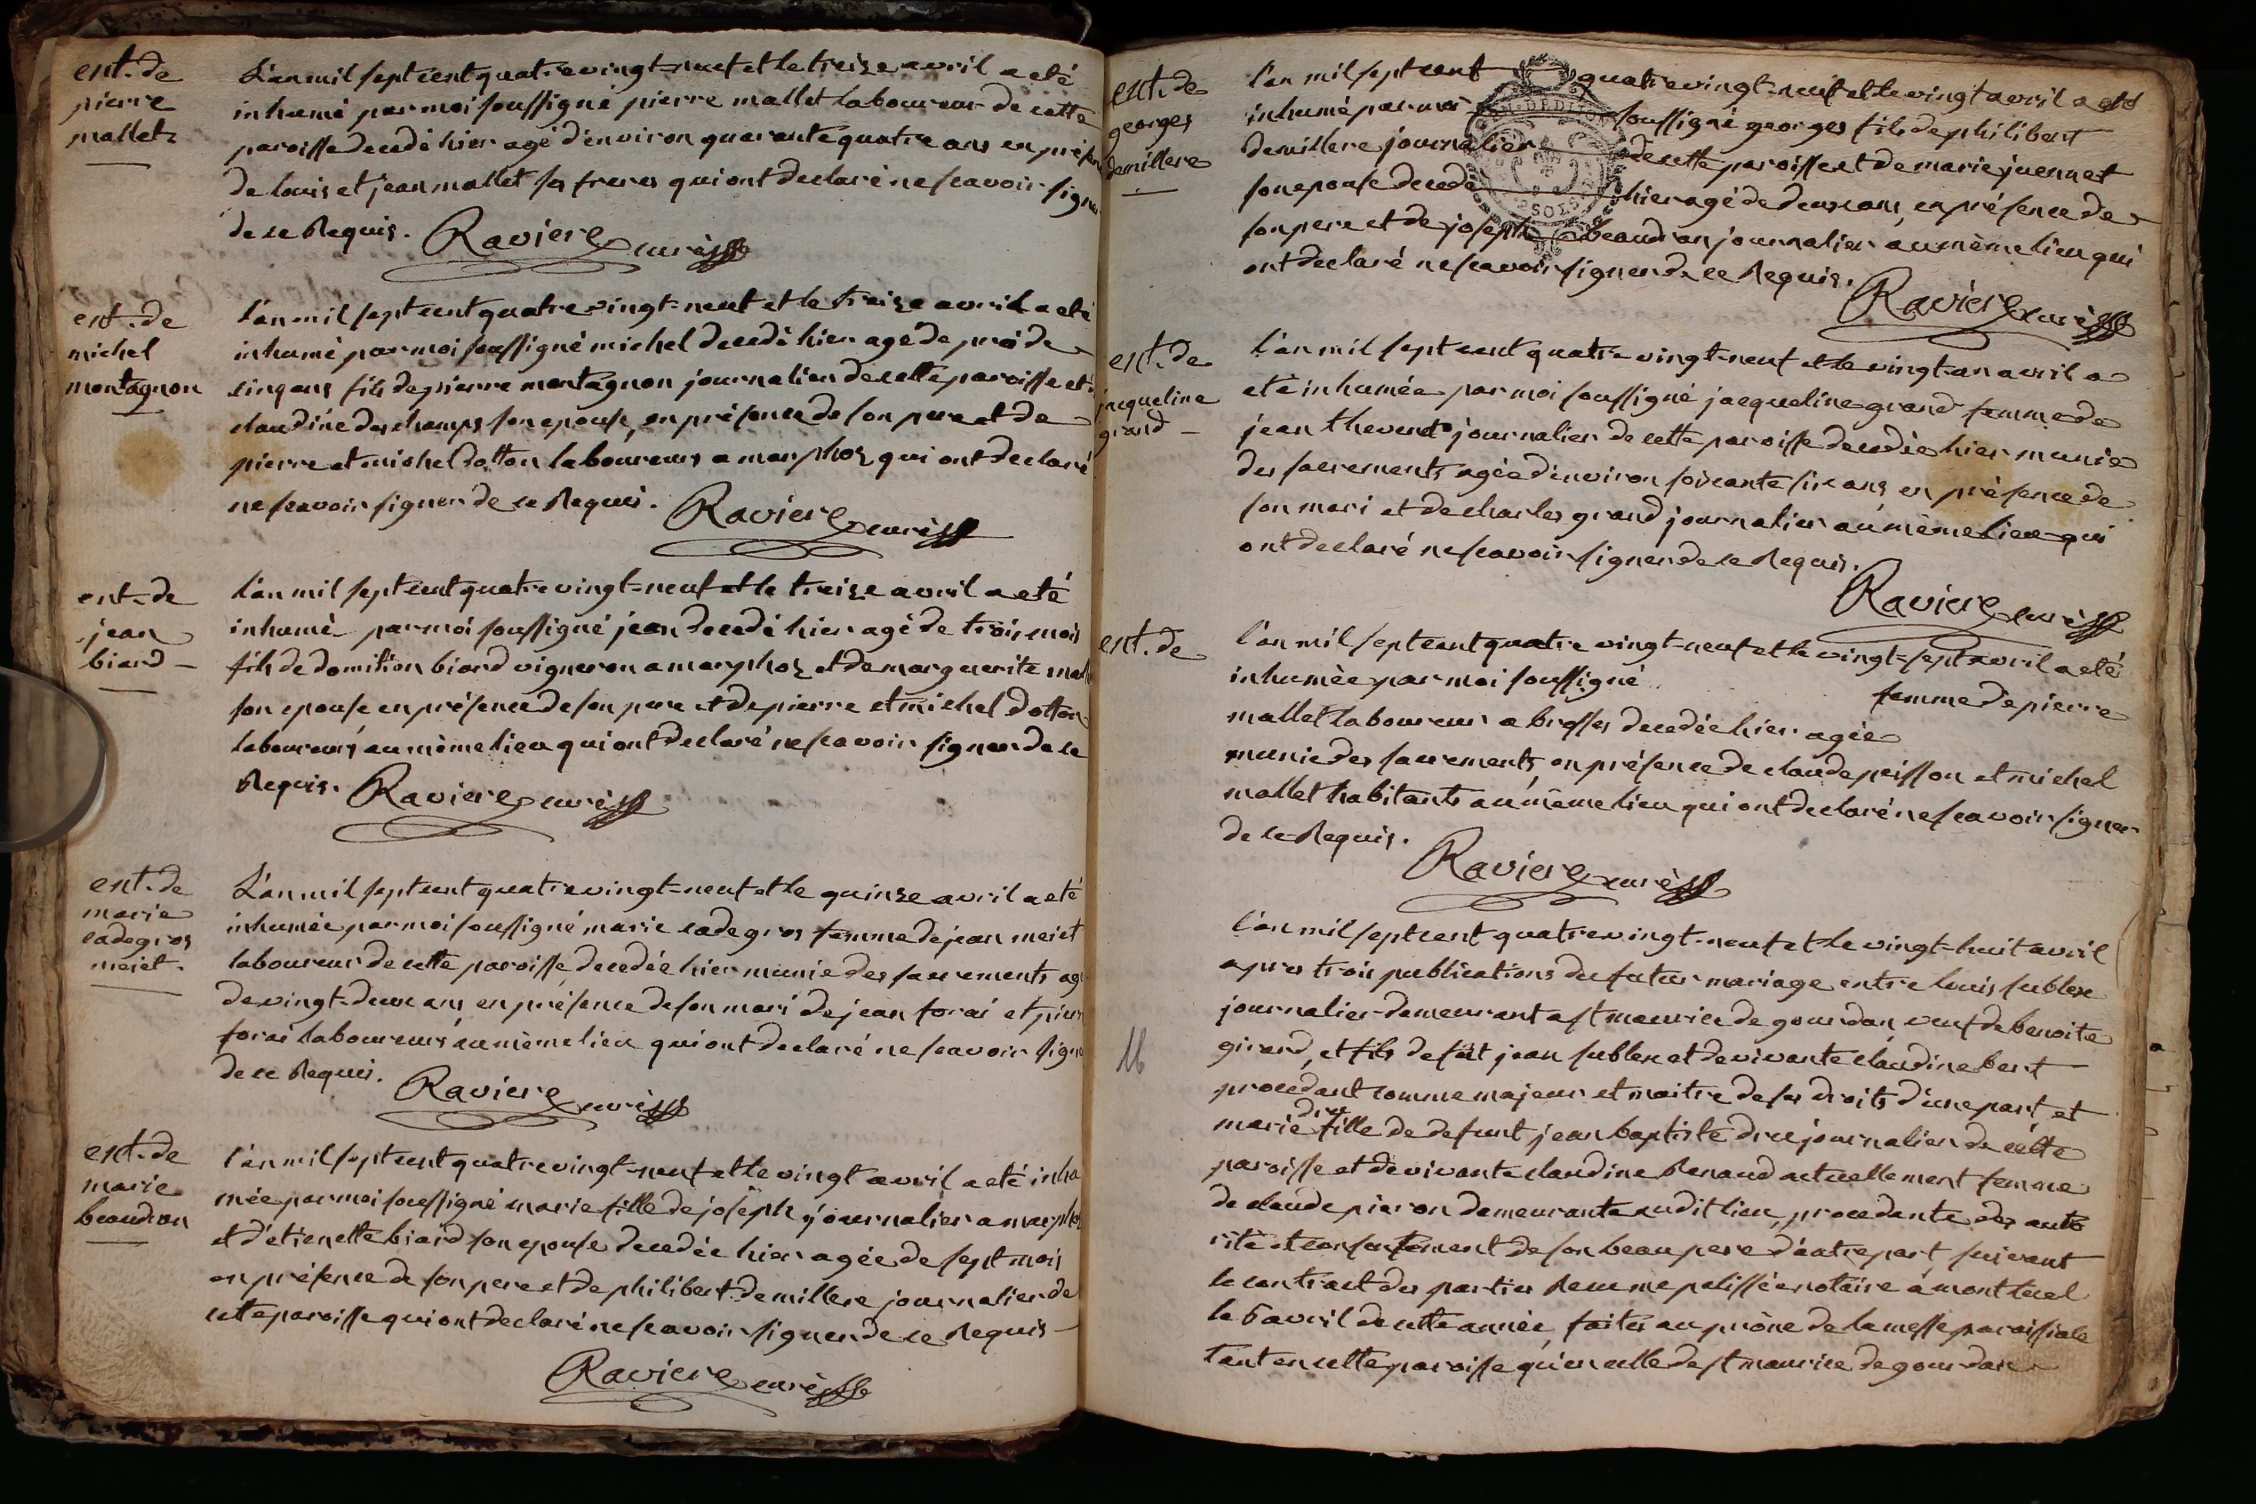 ent. de
pierre
mallet
L'an mil sept cent quatre vingt-neuf et le treize avril a eté
inhumé par moi soussigné pierre mallet laboureur de cette
paroisse decedé hier agé d'environ quarante quatre ans en présen
de louis et jean mallet ses freres qui ont declaré ne scavoir signer
de ce Requis. Raviere curé
ent. de
michel
montagnon
l'an mil sept cent quatre vingt-neuf et le treize avril a eté
inhumé par moi soussigné michel decedé hier agé de près de
cinq ans fils de pierre montagnon journalier de cette paroisse et
claudine deschamps son epouse, en présence de son pere et de
pierre et michel dotton laboureurs a marphoz qui ont declaré
ne scavoir signer de ce Requis. Raviere curé
ent. de
jean
biard
l'an mil sept cent quatre vingt-neuf et le treize avril a eté
inhumé par moi soussigné jean decedé hier agé de trois mois
fils de domitien biard vigneron a marphoz et de marguerite
son epouse en présence de son pere et de pierre et michel dotton
laboureurs au même lieu qui ont declaré ne scavoir signer de ce
Requis. Raviere curé
ent. de
marie
cadegros
meiet.
L'an mil sept cent quatre vingt-neuf et le quinze avril a eté
inhumée par moi soussigné marie cadegros femme de jean meiet
laboureur de cette paroisse, decedée hier munie des sacrements ag
de vingt-deux ans, en présence de son mari de jean forai et pier
forai laboureurs au même lieu qui ont declaré ne scavoir signe
de ce Requis. Raviere curé
ent. de
marie
beaudran
l'an mil sept cent quatre vingt-neuf et le vingt avril a eté inhu
mée par moi soussigné marie fille de joseph journalier a marphoz
et d'étienette biard son epouse decedée hier agée de sept mois
en présence de son pere et de philibert demillere journalier de
cette paroisse qui ont declaré ne scavoir signer de ce Requis
Raviere curé
ent. de
georges
demillere
l'an mil sept cent quatre vingt-neuf et le vingt avril a eté
inhumé par moi soussigné georges fils de philibert
demillere journalier de cette paroisse et de marie juennet
son epouse decedé hier agé de deux ans, en présence de
son pere et de joseph beaudran journalier au même lieu qui
ont declaré ne scavoir signer de ce Requis.
Raviere curé
ent. de
jacqueline
grand
l'an mil sept cent quatre vingt-neuf et le vingt-un avril a
eté inhumée par moi soussigné jacqueline grand femme de
jean thevenet journalier de cette paroisse decedée hier munie
des sacrements agée d'environ soixante six ans en présence de
son mari et de charles grand journalier au même lieu qui
ont declaré ne scavoir signer de ce Requis.
Raviere curé
ent. de
l'an mil sept cent quatre vingt-neuf et le vingt-sept avril a eté
inhumée par moi soussigné femme de pierre
mallet laboureur a brosses decedée hier agée
munie des sacrements, en présence de claude peisson et michel
mallet habitants au même lieu qui ont declaré ne scavoir signer
de ce Requis.
Raviere curé
l'an mil sept cent quatre vingt-neuf et le vingt-huit avril
apres trois publications du futur mariage entre louis sublex
journalier demeurant a st maurice de gourdan, veuf de benoite
girard, et fils de fut jean sublex et de vivante claudine bert
procedant comme majeur et maitre de ses droits d'une part et
marie dru fille de defunt jean baptiste dru journalier de cette
paroisse et de vivante claudine Renaud actuellement femme
de claude pieron demeurante audit lieu, procedante des auto
rité et consentement de son beau pere d'autre part, suivant
le contract des parties Recu me palissée notaire a montluel
le 6 avril de cette année, faites au prône de la messe paroissiale
tant en cette paroisse qu'en celle de st maurice de gourdan
16